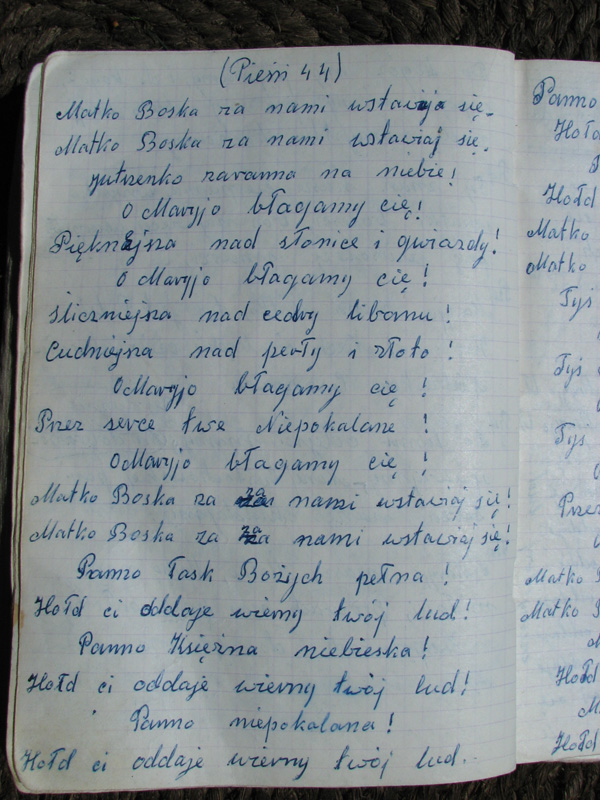 (Pieśń 44)
Matko Boska za nami wstawiaj się.
Matko Boska za nami wstawiaj się.
Jutrzenko zaranna na niebie!
O Maryjo błagamy cię!
Piękniejsza nad słonice i gwiazdy!
O Maryjo błagamy cię!
Śliczniejsza nad cedry libanu!
Cudniejsza nad perły i złoto!
O Maryjo błagamy cię!
Przez serce twe Niepokalane!
O Maryjo błagamy cię!
Matko Boska za za nami wstawiaj się!
Matko Boska za za nami wstawiaj się!
Panno Łask Bożych pełna!
Hołd ci oddaje wierny twój lud!
Panno Księżna niebieska!
Hołd ci oddaje wierny twój lud!
Panno niepokalana!
Hołd ci oddaje wierny twój lud.
Panno
Hołd
Hołd
Matko
Matko
Tyś
Tyś
Tyś
Przez
Matko
Matko
Hołd
Hołd